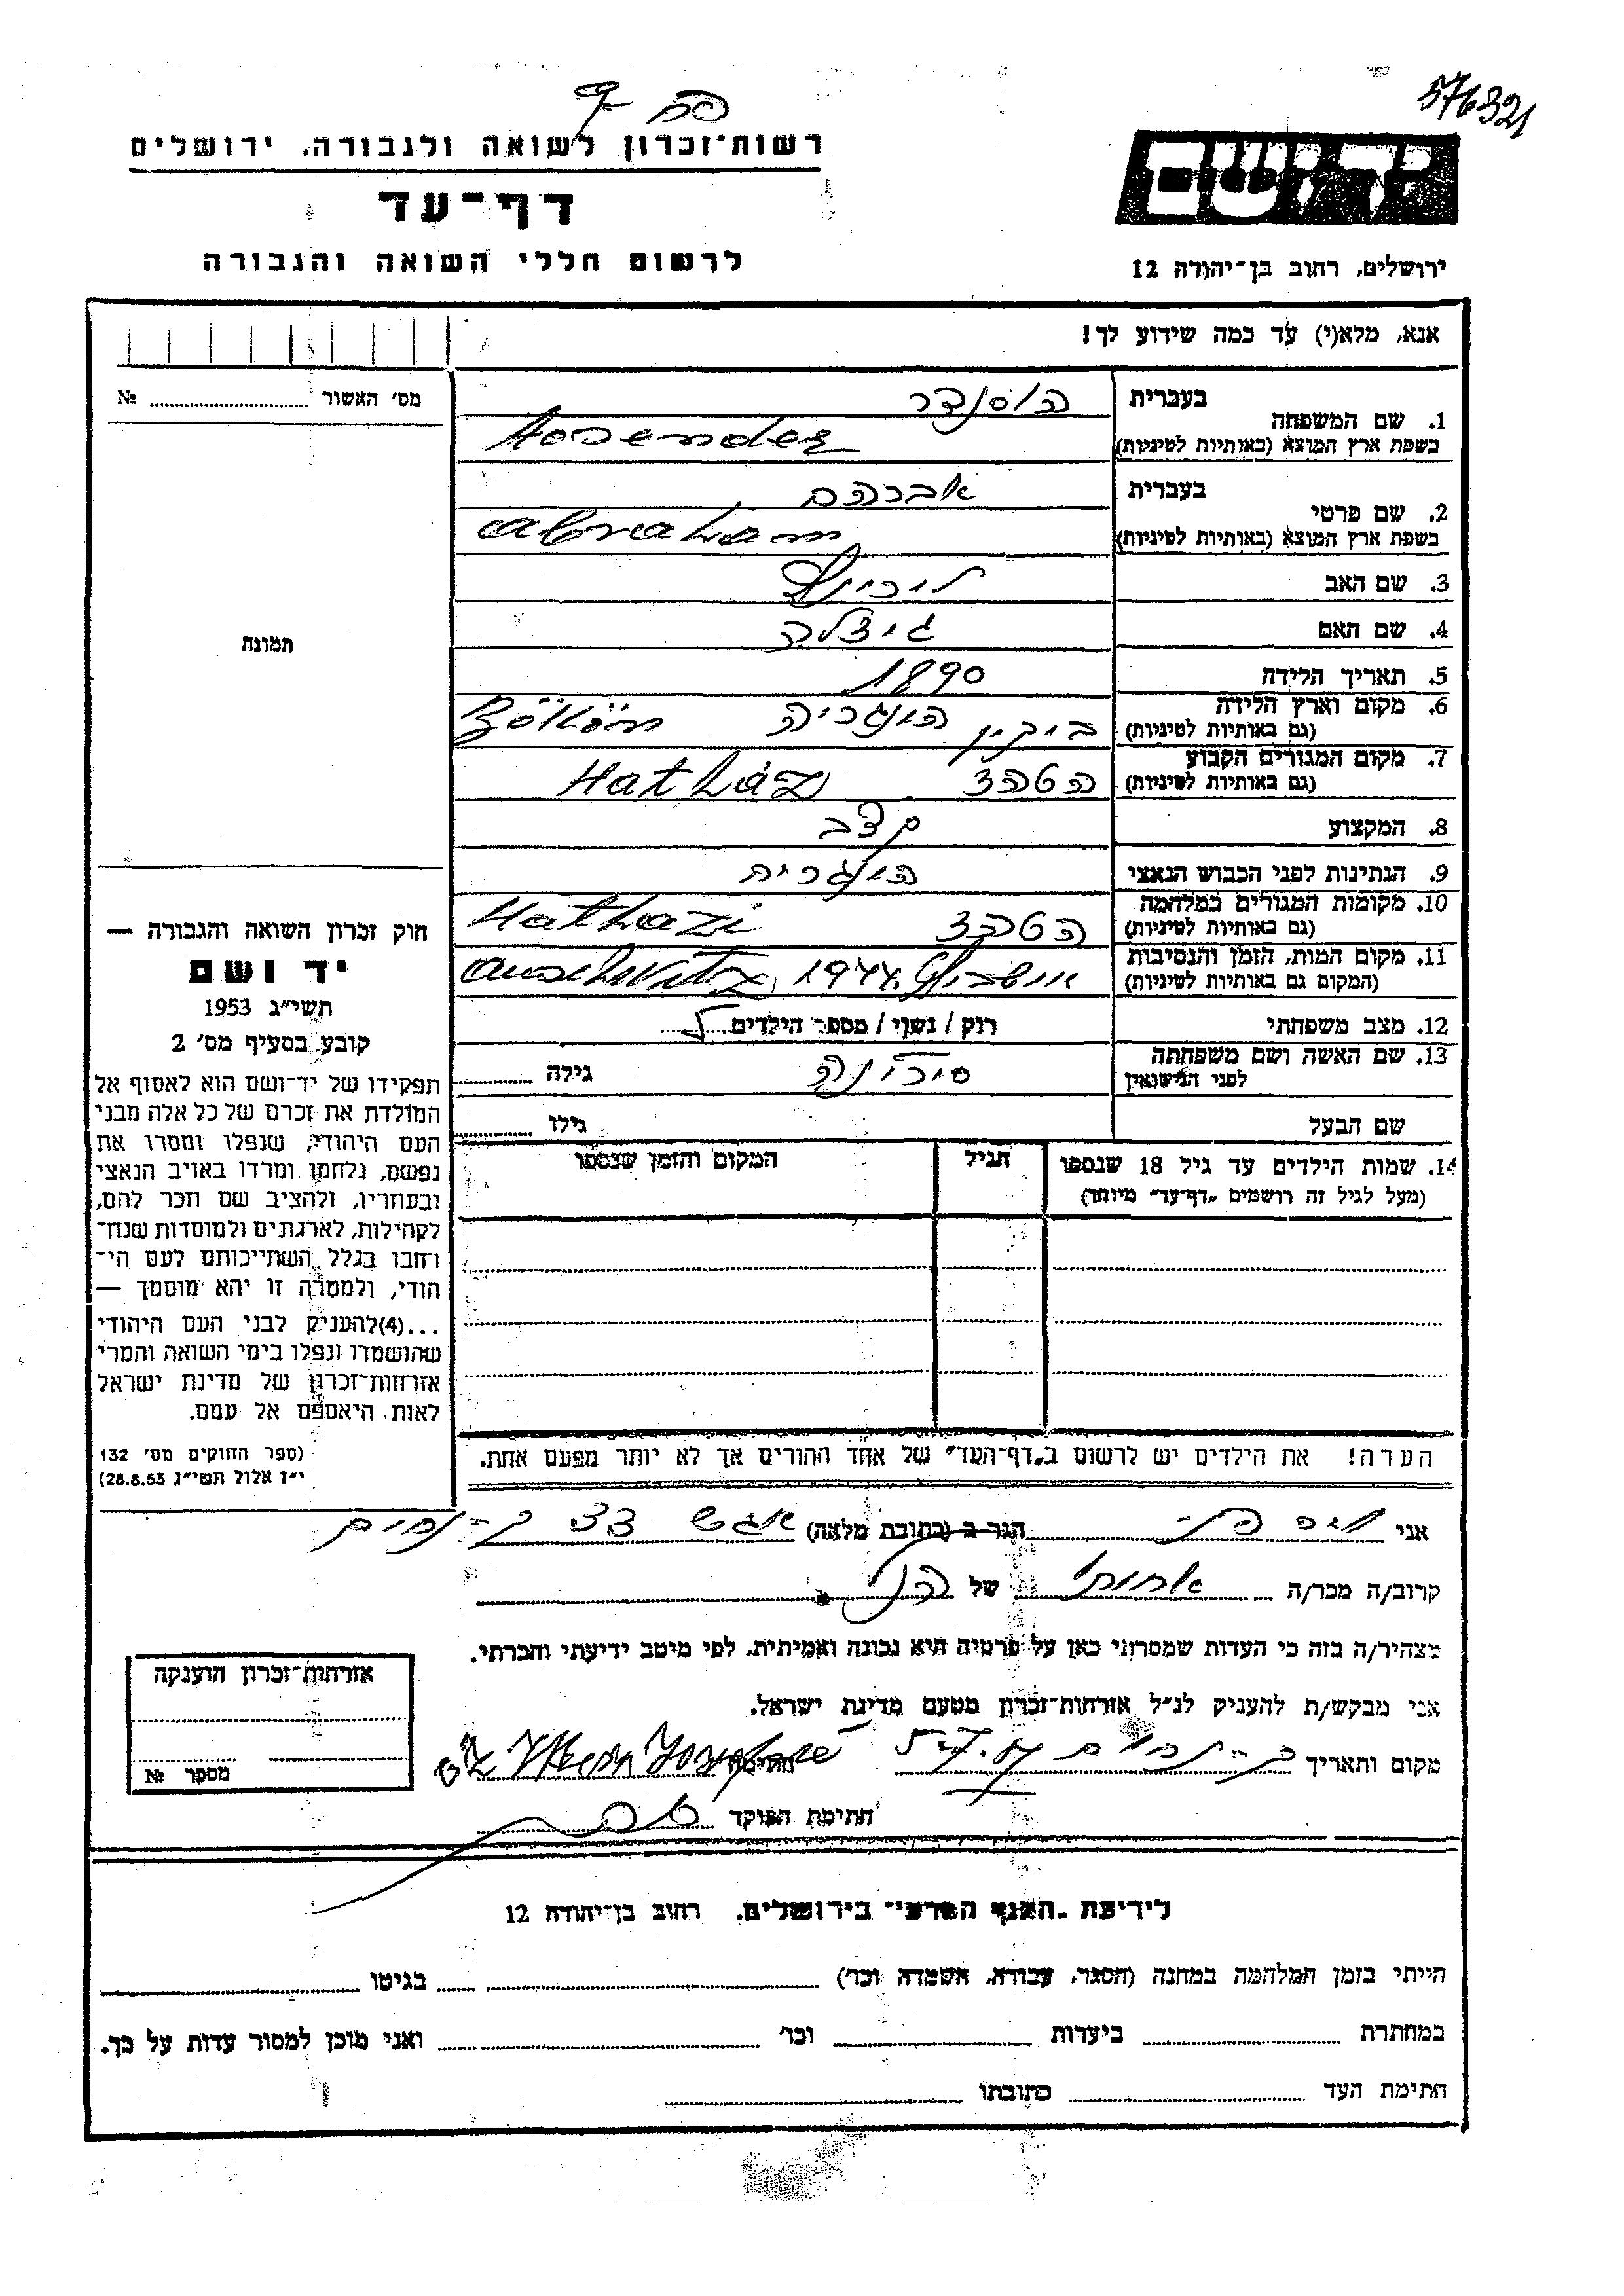 576321
רשות־זכרון לשואה ולגבורה, ירושלים
דף־עד
לרשום חללי השואה והגבורה
ידושם
ירושלים, רחוב בן־יהודה 12
אנא, מלא(י) עד כמה שידוע לך!
מס׳ האשור №
תמונה
1. שם המשפחה
בעברית הוסנדר
בשפת ארץ המוצא (באותיות לטיניות) Hosender
2. שם פרטי
בעברית אברהם
בשפת ארץ המוצא (באותיות לטיניות) Abraham
3. שם האב
4. שם האם גיזלה
5. תאריך הלידה 1890
6. מקום וארץ הלידה
(גם באותיות לטיניות) ביקין הונגריה Bökön
7. מקום המגורים הקבוע
(גם באותיות לטיניות) הטהז Hatház
8. המקצוע קצב
9. הנתינות לפני הכבוש הנאצי הונגרית
10. מקומות המגורים במלחמה
(גם באותיות לטיניות) הטהז Hatházi
11. מקום המות, הזמן והנסיבות
(המקום גם באותיות לטיניות) אושביץ 1944 Auschwitz
12. מצב משפחתי רוק / נשוי / מספר הילדים
13. שם האשה ושם משפחתה
לפני הנישואין סירנה גילה
שם הבעל גילו
14. שמות הילדים עד גיל 18 שנספו
(מעל לגיל זה רושמים „דף־עד״ מיוחד)
הגיל
המקום והזמן שנספו
הערה! את הילדים יש לרשום ב„דף־העד״ של אחד ההורים אך לא יותר מפעם אחת.
חוק זכרון השואה והגבורה —
יד ושם
תשי״ג 1953
קובע בסעיף מס׳ 2
תפקידו של יד־ושם הוא לאסוף אל
המולדת את זכרם של כל אלה מבני
העם היהודי, שנפלו ומסרו את
נפשם, נלחמו ומרדו באויב הנאצי
ובעוזריו, ולהציב שם וזכר להם,
לקהילות, לארגונים ולמוסדות שנח־
רחבו בגלל השתייכותם לעם הי־
הודי, ולמטרה זו יהא מוסמך —
...(4)להעניק לבני העם היהודי
שהושמדו ונפלו בימי השואה והמרי
אזרחות־זכרון של מדינת ישראל
לאות היאספם אל עמם.
(ספר החוקים מס׳ 132
י״ז אלול תשי״ג 28.8.53)
אני הגר ב (כתובת מלאה)
קרוב/ה מכר/ה של
מצהיר/ה בזה כי העדות שמסרתי כאן על פרטיה היא נכונה ואמיתית, לפי מיטב ידיעתי והכרתי.
אני מבקש/ת להעניק לנ״ל אזרחות־זכרון מטעם מדינת ישראל.
מקום ותאריך חתימה
חתימת הפוקד
אזרחות־זכרון הוענקה
מספר №
לידיעת „הענף המרכזי״ בירושלים, רחוב בן־יהודה 12
הייתי בזמן המלחמה במחנה (הסגר, עבודה, השמדה וכו׳) בגיטו
במחתרת ביערות וכו׳ ואני מוכן למסור עדות על כך.
חתימת העד כתובתו